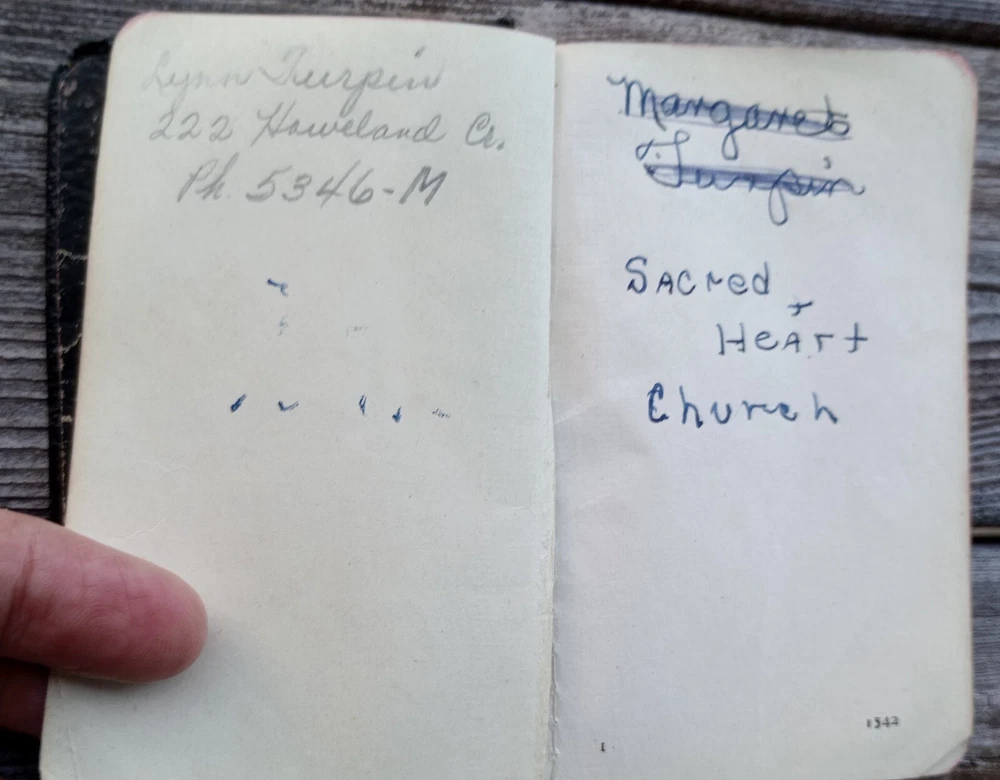 Lynn Turpin
222 Howeland Cr.
Ph. 5346-M
Margaret
Turpin
Sacred
Heart
Church
1542